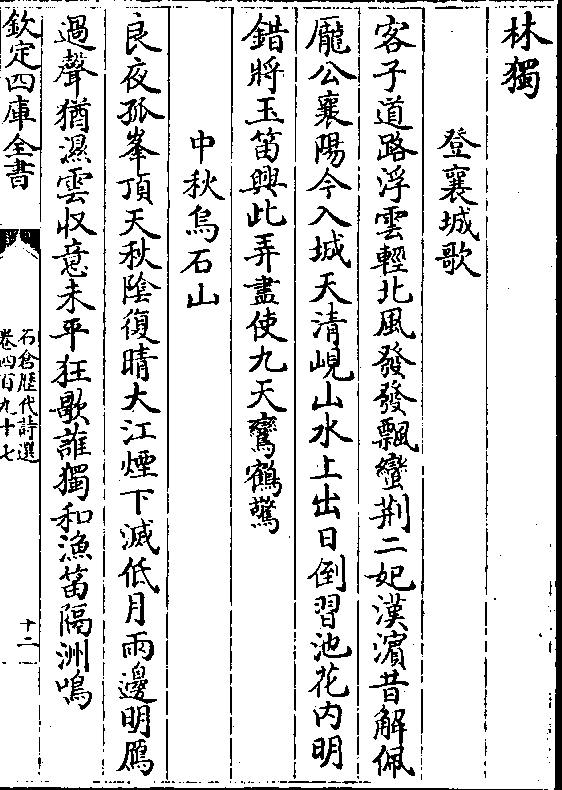 林獨
登襄城歌
客子道路浮雲輕北風發發飄蠻荆二妃漢濱昔解佩
龎公襄陽今入城天清峴山水上出日倒習池花内明
錯將玉笛興此弄盡使九天鸞鶴驚
中秋烏石山
良夜孤峯頂天秋陰復晴大江煙下滅低月雨邊明鴈
過聲猶濕雲収意未平狂歌誰獨和漁笛隔洲鳴
欽定四庫全書
石倉歷代詩選
卷四百九十七
十二